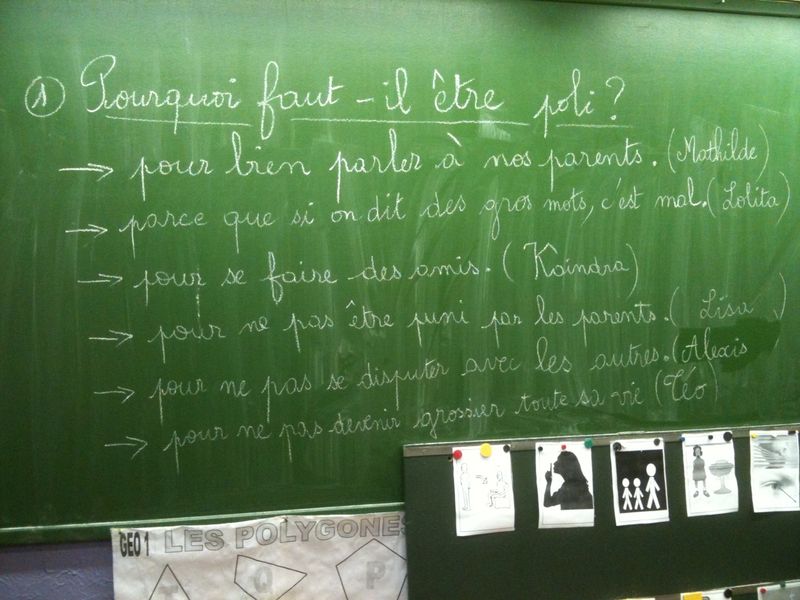 ① Pourquoi faut-il être poli ?
→ pour bien parler à nos parents. (Mathilde)
→ parce que si on dit des gros mots, c'est mal. (Lolita)
→ pour se faire des amis. (Kaindra)
→ pour ne pas être puni par les parents. (Lisa)
→ pour ne pas se disputer avec les autres. (Alexis
→ pour ne pas devenir grossier toute sa vie (Téo)
GEO 1 LES POLYGONES
T Q P